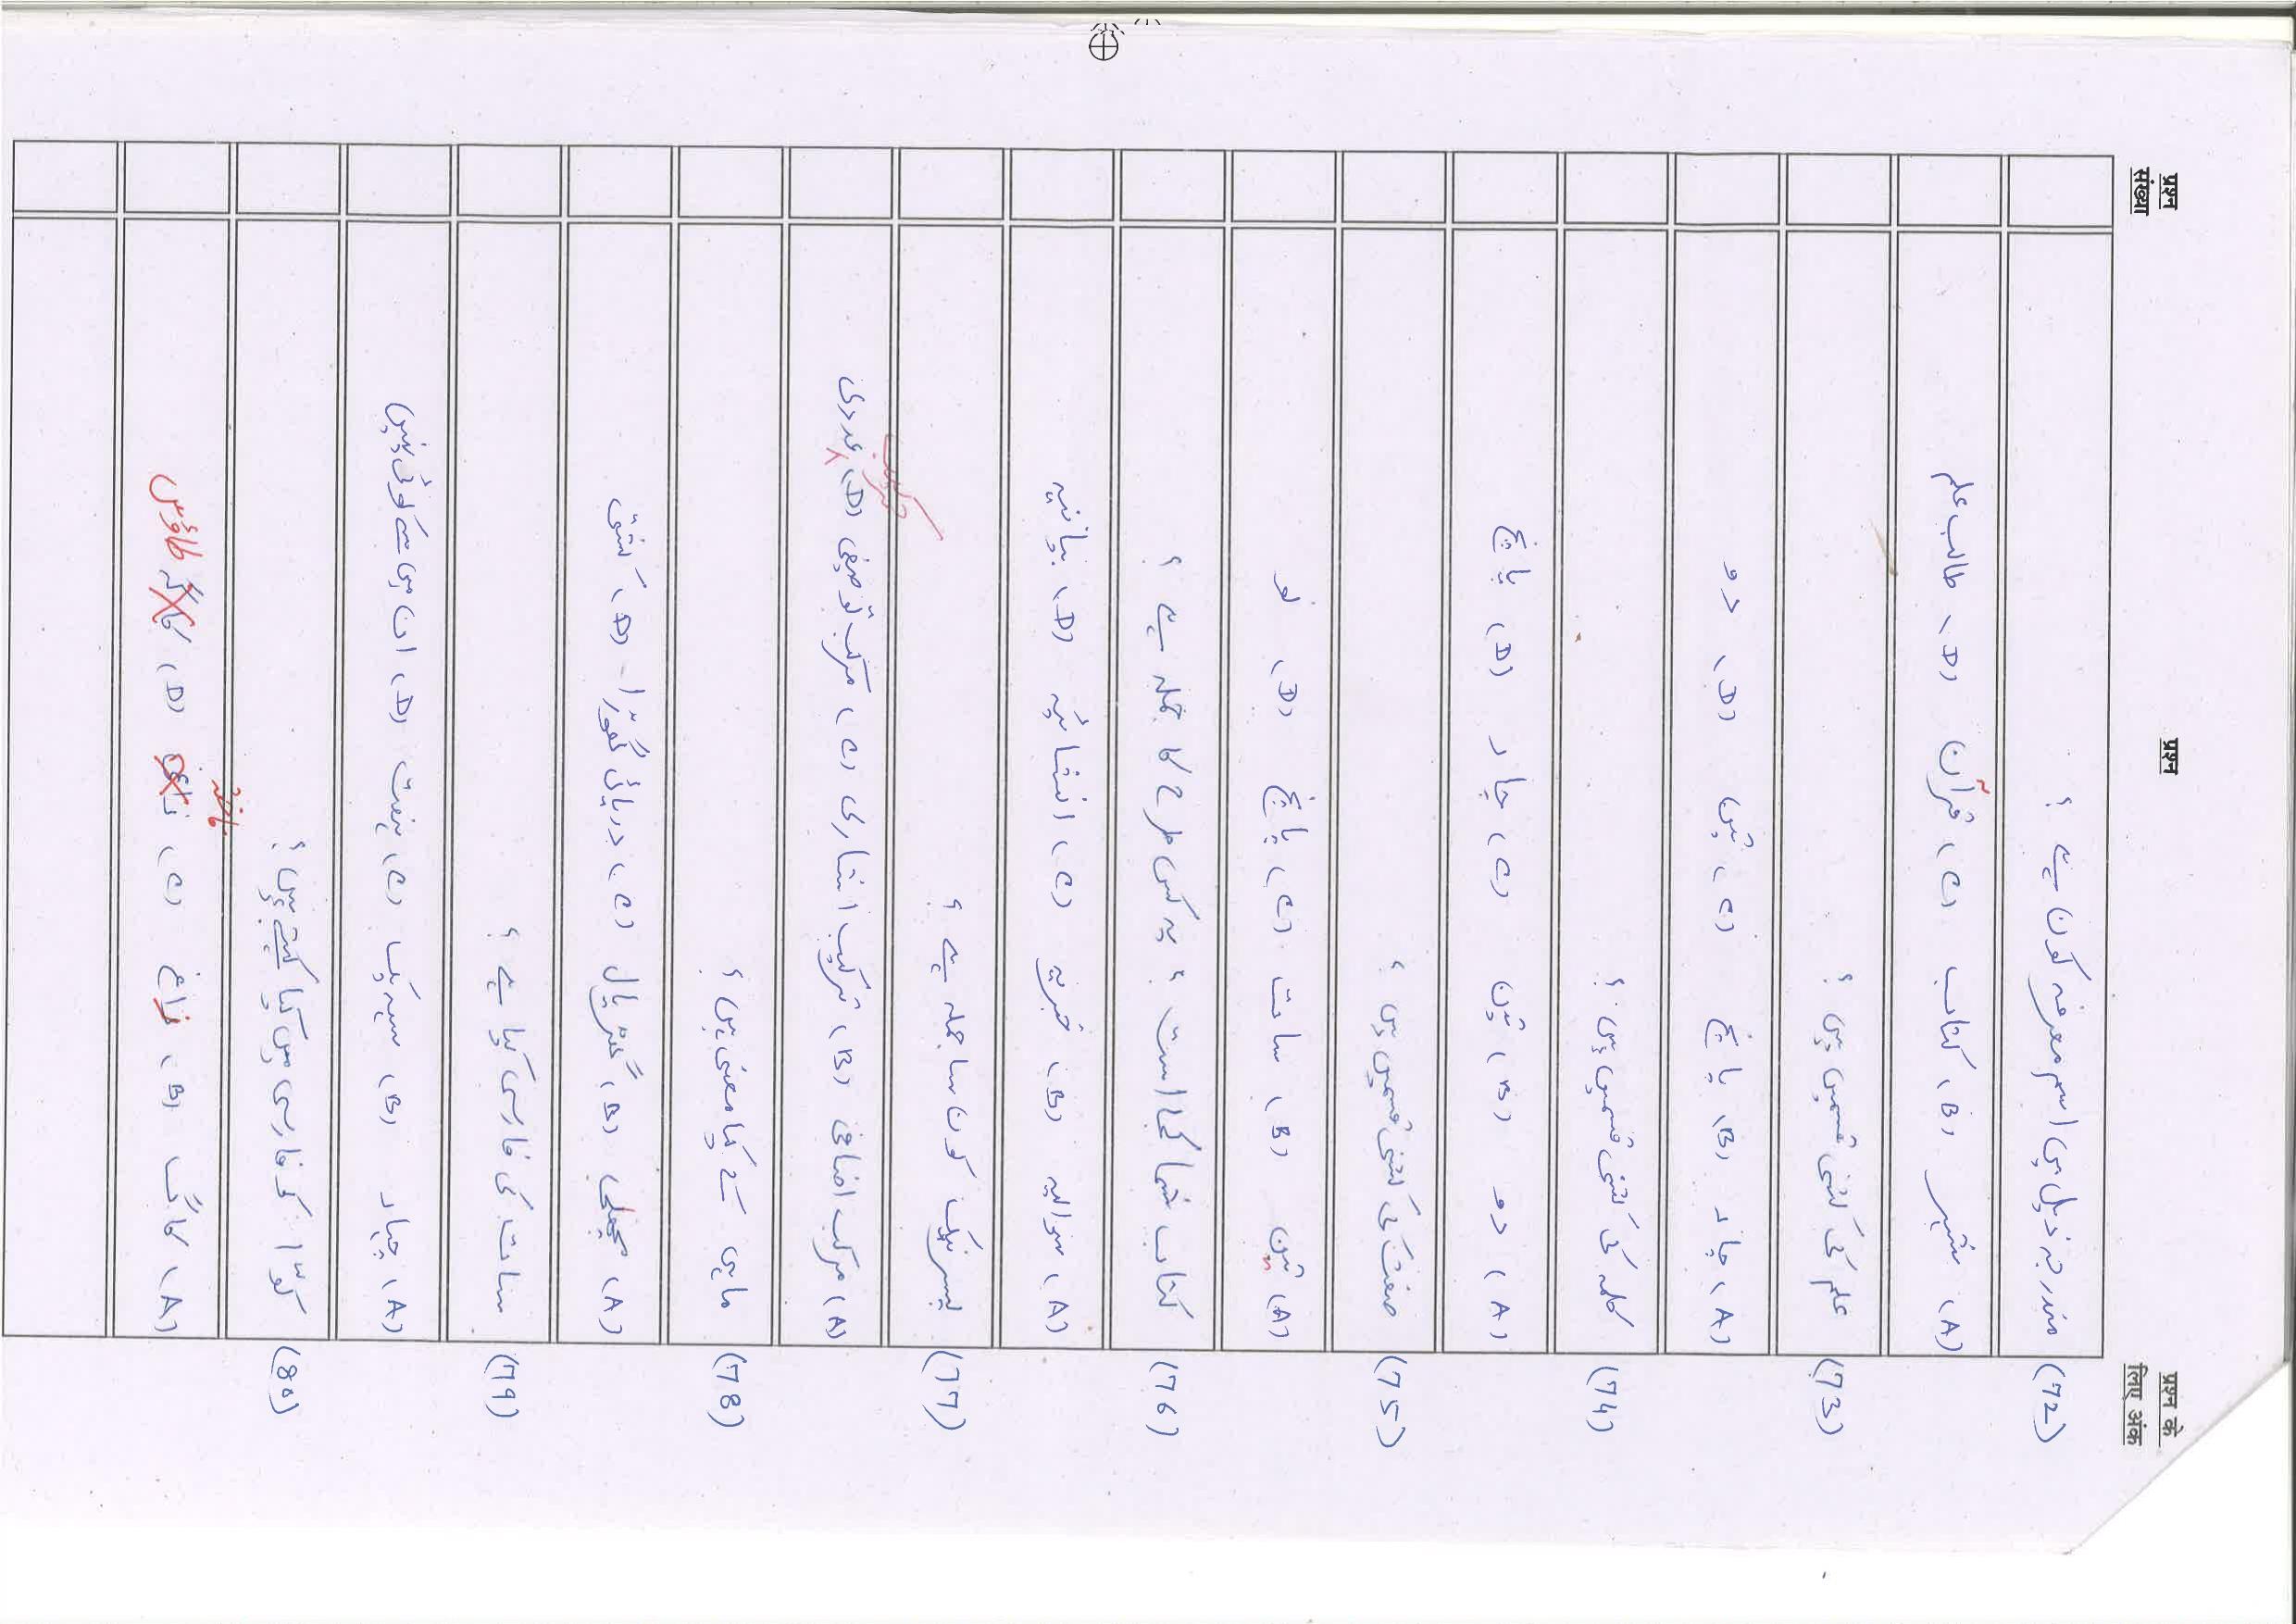 प्रश्न संख्या
प्रश्न
प्रश्न के लिए अंक
(72) مندرجہ ذیل میں اسم معرفہ کون ہے ؟
(A) شہر (B) کتاب (C) قرآن (D) طالب علم
(73) علم کی کتنی قسمیں ہیں ؟
(A) چار (B) پانچ (C) تین (D) دو
(74) کلمہ کی کتنی قسمیں ہیں ؟
(A) دو (B) تین (C) چار (D) پانچ
(75) صفت کی کتنی قسمیں ہیں ؟
(A) تین (B) سات (C) پانچ (D) نو
(76) کتاب شما کجا است ؟ یہ کس طرح کا جملہ ہے ؟
(A) سوالیہ (B) خبریہ (C) انشائیہ (D) بیانیہ
(77) پسر نیک کون سا جملہ ہے ؟
(A) مرکب اضافی (B) ترکیب اشاری (C) مرکب توصیفی (D) مرکب عددی
(78) ماہی کے کیا معنی ہیں ؟
(A) مچھلی (B) گھڑیال (C) دریائی گھوڑا - (D) کشتی
(79) سات کی فارسی کیا ہے ؟
(A) چہار (B) سہ یک (C) ہفت (D) ان میں سے کوئی نہیں
(80) کوّا کو فارسی میں کیا کہتے ہیں ؟
(A) کاگ (B) زاغ (C) فاختہ (D) طاؤس